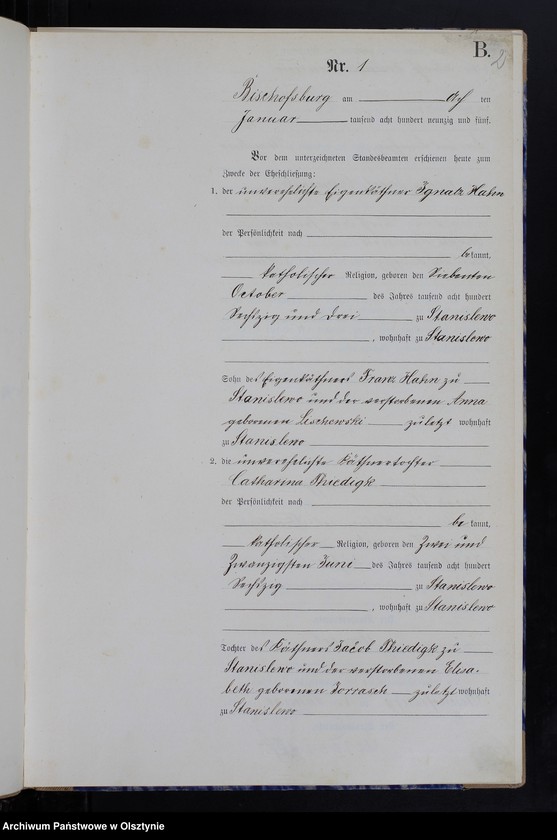 B.
Nr. 1
Bischofsburg am acht ten
Januar tausend acht hundert neunzig und fünf.
Vor dem unterzeichneten Standesbeamten erschienen heute zum
Zwecke der Eheschließung:
1. der unverehelichte Eigenkäthner Ignatz Hahn
der Persönlichkeit nach
bekannt,
katholischer Religion, geboren den Siebenten
October des Jahres tausend acht hundert
Sechszig und drei zu Stanislewo
, wohnhaft zu Stanislewo
Sohn des Eigenkäthners Franz Hahn zu
Stanislewo und der verstorbenen Anna
geborenen Lischewski zuletzt wohnhaft
zu Stanislewo
2. die unverehelichte Käthnertochter
Catharina Thiedigk
der Persönlichkeit nach
bekannt,
katholischer Religion, geboren den Zwei und
Zwanzigsten Juni des Jahres tausend acht hundert
Sechszig zu Stanislewo
, wohnhaft zu Stanislewo
Tochter des Käthners Jacob Thiedigk zu
Stanislewo und der verstorbenen Elisa-
beth geborenen Zorrasch zuletzt wohnhaft
zu Stanislewo
Archiwum Państwowe w Olsztynie